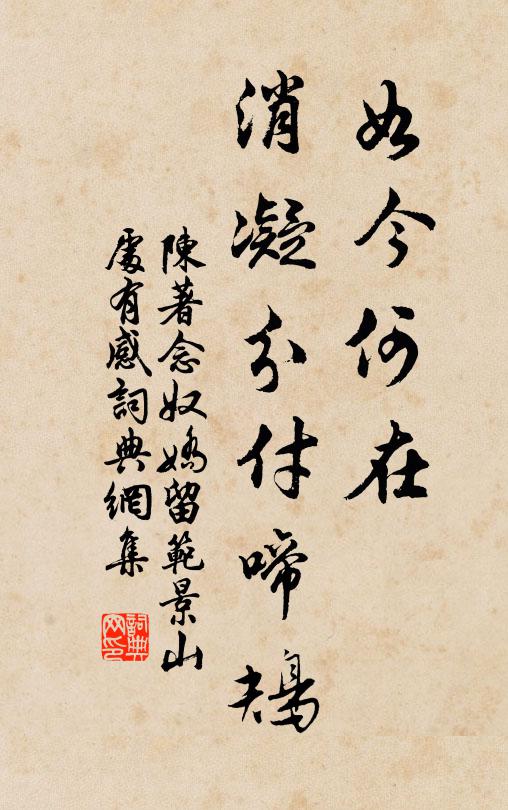 如今何在
消凝分付啼鴂
陳著念奴嬌留範景山
處有感詞典網集
詞典
网印